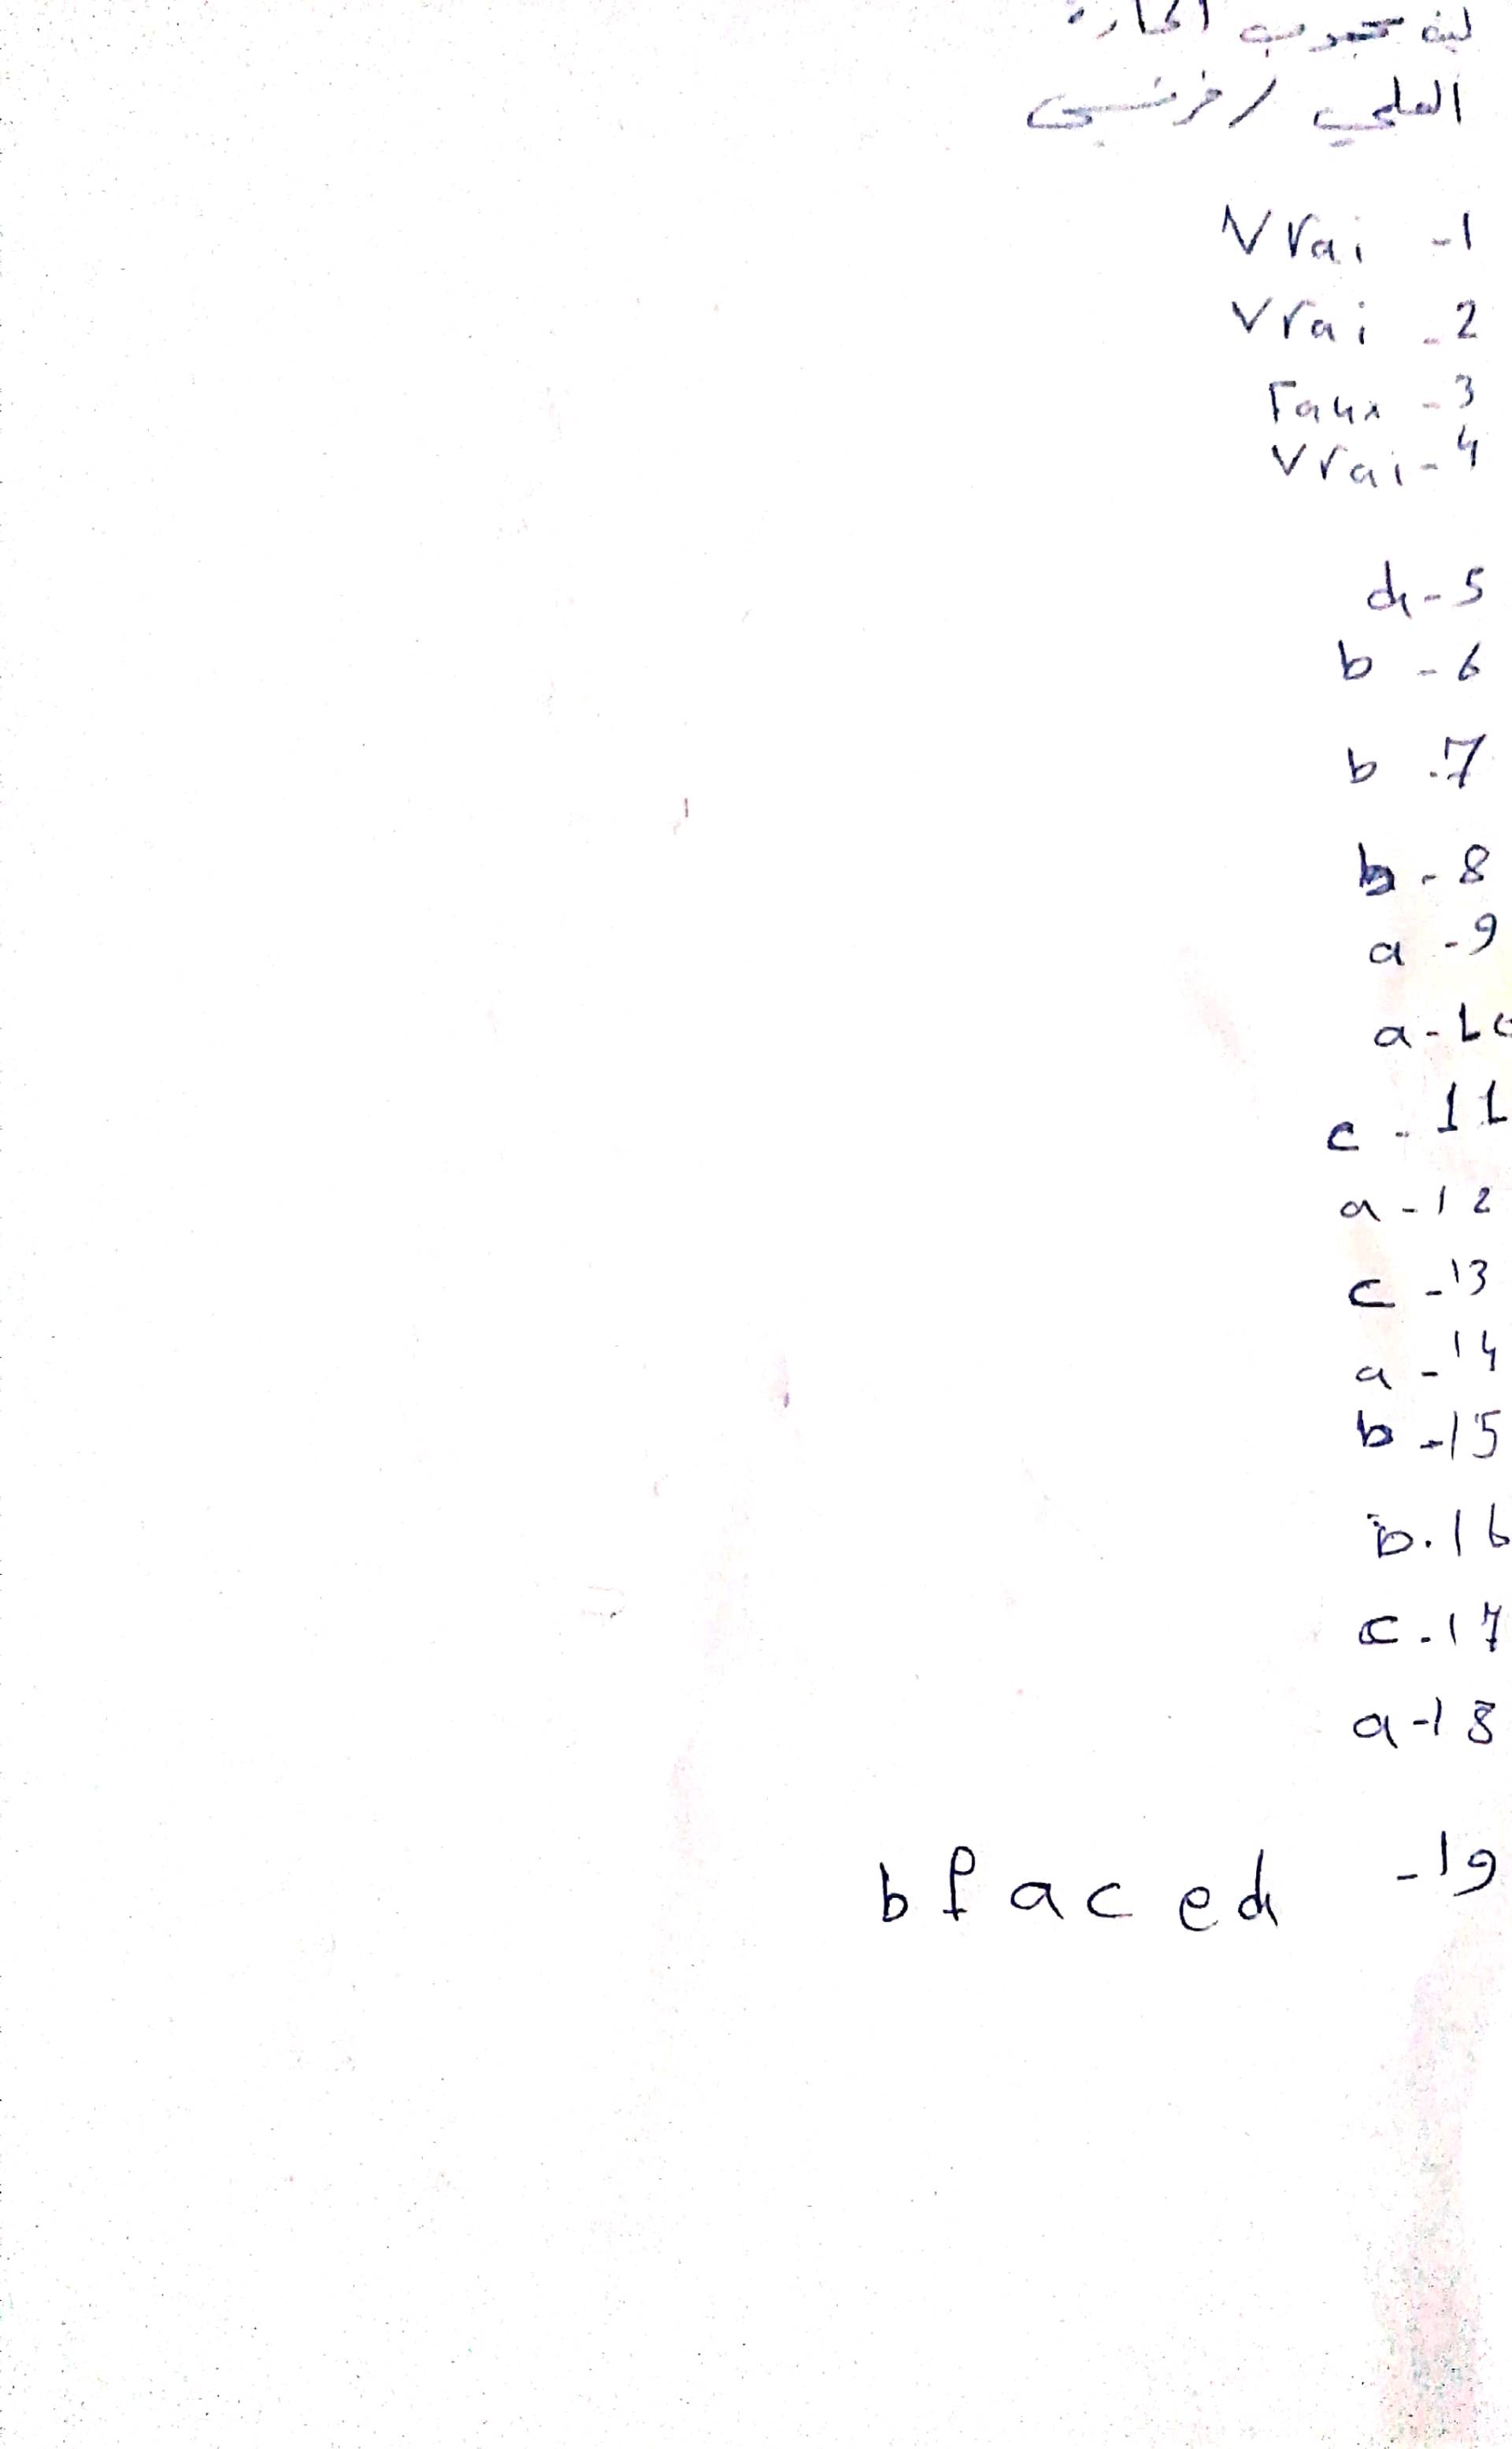 العلمي / فرنسي
Vrai -1
Vrai - 2
Faux - 3
Vrai - 4
d - 5
b - 6
b . 7
b - 8
a - 9
a - 10
c - 11
a - 12
c - 13
a - 14
b - 15
b . 16
c - 17
a - 18
b f a c e d - 19